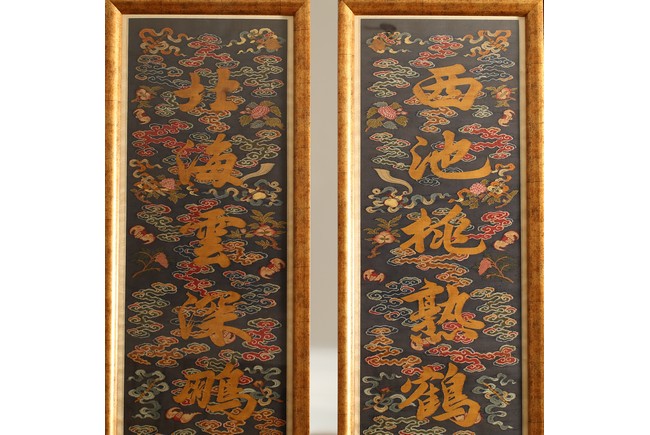 西池桃熟鶴
北海雲深鵬